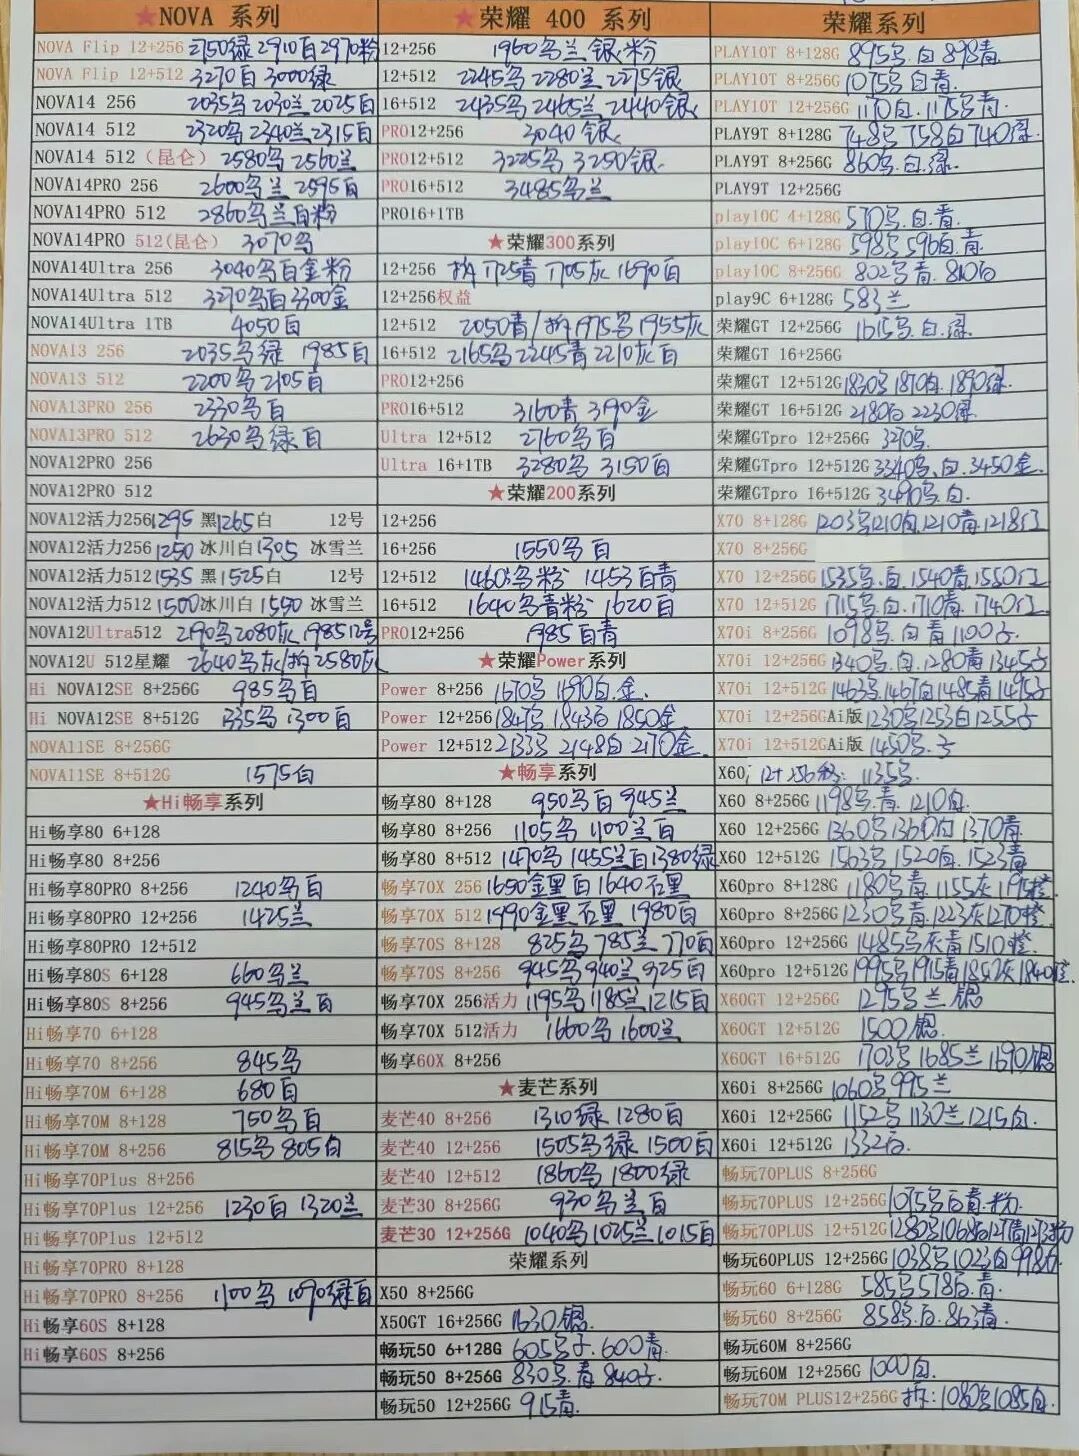 ★NOVA 系列
NOVA Flip 12+256 2750绿 2910白 2970粉
NOVA Flip 12+512 3270白 3000绿
NOVA14 256 2035乌 2030兰 2025白
NOVA14 512 2320乌 2340兰 2315白
NOVA14 512 (昆仑) 2580乌 2560兰
NOVA14PRO 256 2600乌兰 2595白
NOVA14PRO 512 2860乌兰白粉
NOVA14PRO 512(昆仑) 3070乌
NOVA14Ultra 256 3040乌白金粉
NOVA14Ultra 512 3270乌白 3300金
NOVA14Ultra 1TB 4050白
NOVA13 256 2035乌绿 1985白
NOVA13 512 2200乌 2105白
NOVA13PRO 256 2330乌白
NOVA13PRO 512 2630乌绿白
NOVA12PRO 256
NOVA12PRO 512
NOVA12活力256 1295 黑 1265 白 12号
NOVA12活力256 1250 冰川白 1305 冰雪兰
NOVA12活力512 1535 黑 1525 白 12号
NOVA12活力512 1500 冰川白 1550 冰雪兰
NOVA12Ultra512 2190乌 2080灰 1985 12号
NOVA12U 512星耀 2640乌灰/拆 2580灰
Hi NOVA12SE 8+256G 985乌白
Hi NOVA12SE 8+512G 1335乌 1300白
NOVA11SE 8+256G
NOVA11SE 8+512G 1575白
★Hi畅享系列
Hi畅享80 6+128
Hi畅享80 8+256
Hi畅享80PRO 8+256 1240乌白
Hi畅享80PRO 12+256 1425兰
Hi畅享80PRO 12+512
Hi畅享80S 6+128 660乌兰
Hi畅享80S 8+256 945乌兰白
Hi畅享70 6+128
Hi畅享70 8+256 845乌
Hi畅享70M 6+128 680白
Hi畅享70M 8+128 750乌白
Hi畅享70M 8+256 815乌 805白
Hi畅享70Plus 8+256
Hi畅享70Plus 12+256 1230白 1320兰
Hi畅享70Plus 12+512
Hi畅享70PRO 8+128
Hi畅享70PRO 8+256 1100乌 1090绿白
Hi畅享60S 8+128
Hi畅享60S 8+256
★荣耀 400 系列
12+256 1960乌兰银粉
12+512 2245乌 2280兰 2275银
16+512 2435乌 2465兰 2440银
PRO12+256 3040银
PRO12+512 3225乌 3250银
PRO16+512 3485乌兰
PRO16+1TB
★荣耀300系列
12+256 拆 1725青 1705灰 1690白
12+256权益
12+512 2050青/拆 1975乌 1955灰
16+512 2165乌 2245青 2210灰白
PRO12+256
PRO16+512 3160青 3190金
Ultra 12+512 2760乌白
Ultra 16+1TB 3280乌 3150白
★荣耀200系列
12+256
16+256 1550乌白
12+512 1460乌粉 1453白青
16+512 1640乌青粉 1620白
PRO12+256 1985白青
★荣耀Power系列
Power 8+256 1670乌 1690白.金.
Power 12+256 1847乌 1843白 1850金
Power 12+512 2133乌 2148白 2170金
★畅享系列
畅享80 8+128 950乌白 945兰
畅享80 8+256 1105乌 1100兰白
畅享80 8+512 1470乌 1455兰白 1380绿
畅享70X 256 1650金黑白 1640石黑
畅享70X 512 1990金黑石黑 1980白
畅享70S 8+128 825乌 785兰 770白
畅享70S 8+256 945乌 940兰 925白
畅享70X 256活力 1195乌 1185兰 1215白
畅享70X 512活力 1660乌 1600兰
畅享60X 8+256
★麦芒系列
麦芒40 8+256 1310绿 1280白
麦芒40 12+256 1505乌绿 1500白
麦芒40 12+512 1860乌 1800绿
麦芒30 8+256G 930乌兰白
麦芒30 12+256G 1040乌 1025兰 1015白
荣耀系列
X50 8+256G
X50GT 16+256G 1630银.
畅玩50 6+128G 605乌子. 600青.
畅玩50 8+256G 830乌.青 840子.
畅玩50 12+256G 915青.
荣耀系列
PLAY10T 8+128G 895乌.白 898青.
PLAY10T 8+256G 1075乌白青.
PLAY10T 12+256G 1170白. 1175乌青.
PLAY9T 8+128G 748乌 758白 740绿.
PLAY9T 8+256G 860乌.白.绿.
PLAY9T 12+256G
play10C 4+128G 570乌.白.青.
play10C 6+128G 598乌 596白.青.
play10C 8+256G 802乌青. 810白
play9C 6+128G 583兰
荣耀GT 12+256G 1615乌.白.绿.
荣耀GT 16+256G
荣耀GT 12+512G 1830乌 1870白. 1890绿.
荣耀GT 16+512G 2180白 2230绿.
荣耀GTpro 12+256G 3270乌.
荣耀GTpro 12+512G 3340乌.白. 3450金.
荣耀GTpro 16+512G 3490乌.白.
X70 8+128G 1203乌 1210白 1210青 1218红
X70 8+256G
X70 12+256G 1535乌.白. 1540青. 1550红
X70 12+512G 1715乌.白. 1710青. 1740红.
X70i 8+256G 1098乌.白青 1100子.
X70i 12+256G 1340乌.白. 1280青 1345子
X70i 12+512G 1463乌. 1467白 1485青 1495子
X70i 12+256GAi版 1230乌 1253白 1255子
X70i 12+512GAi版 1450乌.子
X60i 12+256移: 1135乌.
X60 8+256G 1198乌.青. 1210白.
X60 12+256G 1360乌 1360白 1370青.
X60 12+512G 1563乌 1520白. 1523青
X60pro 8+128G 1180乌青. 1155灰 1195橙.
X60pro 8+256G 1230乌青. 1223灰 1270橙.
X60pro 12+256G 1485乌灰青 1510橙.
X60pro 12+512G 1995乌 1915青 1852灰 1840橙.
X60GT 12+256G 1295乌兰银
X60GT 12+512G 1500银.
X60GT 16+512G 1703乌 1685兰 1690银
X60i 8+256G 1060乌 995兰
X60i 12+256G 1152乌 1130兰 1215白.
X60i 12+512G 1332白.
畅玩70PLUS 8+256G
畅玩70PLUS 12+256G 1075乌白青.粉.
畅玩70PLUS 12+512G 1280乌
畅玩60PLUS 12+256G 1038乌 1023白 998
畅玩60 6+128G 585乌 578白.青.
畅玩60 8+256G 858乌.白. 863青.
畅玩60M 8+256G
畅玩60M 12+256G 1000白.
畅玩70M PLUS12+256G 拆: 1080乌 1085白.